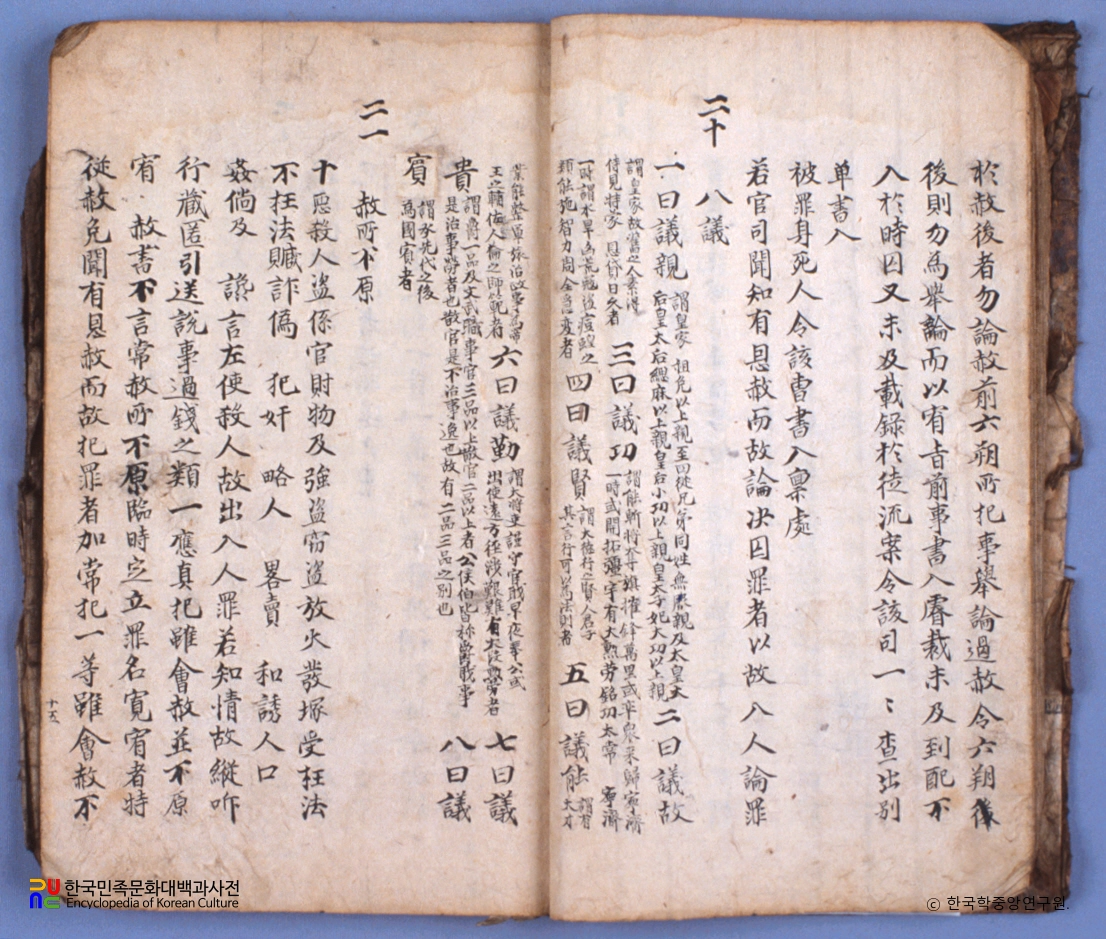 於赦後者勿論赦前六朔所犯事舉論過赦令六朔後
後則勿爲舉論而以宥旨前事書入睿裁未及到配不
入於時囚又未及載錄於徒流案令該司一〻查出別
单書入
被罪身死人令該曺書入稟處
若官司聞知有恩赦而故論决囚罪者以故入人論罪
二十
八議
一曰議親 謂皇家袒免以上親至四從兄弟同姓無服親及太皇太
后皇太后緦麻以上親皇后小功以上親皇太子妃大功以上親 二曰議故
謂皇家故舊之人素得
侍見特蒙恩待日久者 三曰議功 謂能斬將奪旗摧鋒萬里或率衆来歸寧濟
一時或開拓疆宇有大勲劳銘功太常
一時謂水旱凶荒
類能施智力周全 者 四曰議賢 謂大德行之賢人君子
其言行可以爲法則者 五曰議能 謂有
大才
業能整軍旅治政事爲帝
王之輔佐人倫之師範者 六曰議勤 謂大將吏謹守官戢早夜奉公或
出使遠方徑涉艱難有大段勲劳者 七曰議
貴 謂爵一品及文武職事官三品以上散官二品以上者公侯伯皆称爵戢事
是治事勞者也散官是不治事逸也故有二品三品之別也 八曰議
賓 謂承先代之後
爲國賓者
二一
赦所不原
十惡殺人盜係官財物及強盜窃盜放火發塚受枉法
不枉法贓詐僞 犯奸 略人 畧賣 和誘人口
姦倘及 讒言左使殺人故出入人罪若知情故縱听
行蔵匿引送說事過錢之類一應真犯雖會赦並不原
宥 赦書不言常赦所不原臨時定立罪名寬宥者特
從赦免聞有恩赦而故犯罪者加常犯一等雖會赦不
十五
한국민족문화대백과사전
Encyclopedia of Korean Culture
ⓒ 한국학중앙연구원.